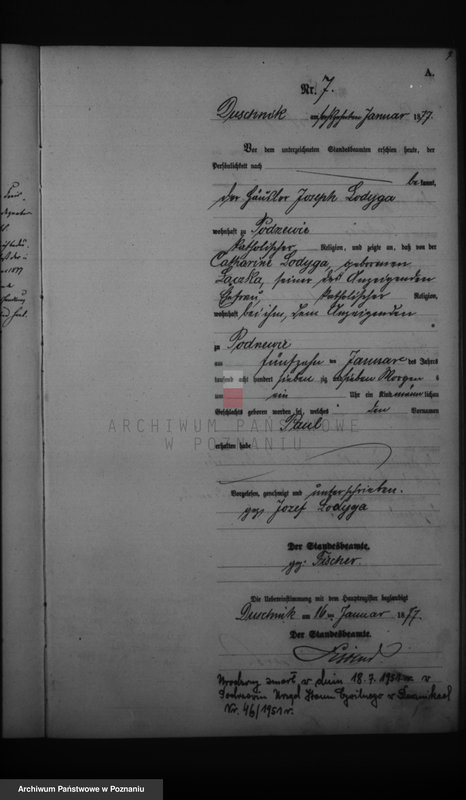 A.
Nr. 7.
Duschnik am sechszehnten Januar 1877.
Vor dem unterzeichneten Standesbeamten erschien heute, der
Persönlichkeit nach
bekannt,
der Häusler Joseph Lodyga
wohnhaft zu Podrzewie
katholischer Religion, und zeigte an, daß von der
Catharine Lodyga, geborenen
Laczka, seiner des Anzeigenden
Ehefrau, katholischer Religion,
wohnhaft bei ihm, dem Anzeigenden
zu Podrzewie
am fünfzehn ten Januar des Jahres
tausend acht hundert siebenzig und sieben Morgens
um ein Uhr ein Kind männlichen
Geschlechts geboren worden sei, welches den Vornamen
Paul
erhalten habe
ARCHIWUM PAŃSTWOWE
W POZNANIU
Vorgelesen, genehmigt und unterschrieben.
gez. Jozef Lodyga
Der Standesbeamte.
gez: Fischer.
Die Uebereinstimmung mit dem Hauptregister beglaubigt
Duschnik am 16 ten Januar 1877.
Der Standesbeamte.
zmarł w dniu 18.7.1951 r. w
Urząd Stanu Cywilnego w
Nr. 46/1951 r.
Archiwum Państwowe w Poznaniu